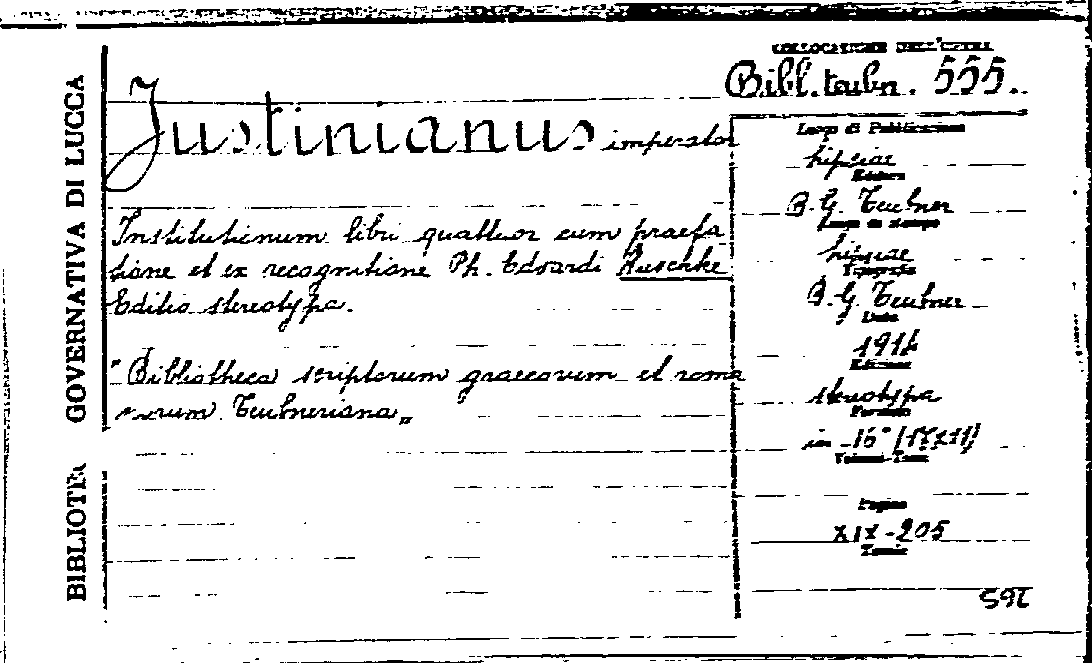 BIBLIOTE GOVERNATIVA DI LUCCA
COLLOCAZIONE DELL'OPERA
Bibl. teubn. 555.
Justinianus imperator
Institutionum libri quattuor cum praefa
tione et ex recognitione Ph. Edoardi Huschke
Editio stereotypa.
"Bibliotheca scriptorum graecorum et roma
norum Teubneriana„
Luogo di Pubblicazione
Lipsiae
Editore
B. G. Teubner
Luogo di stampa
Lipsiae
Tipografia
B. G. Teubner
Data
Edizione
stereotypa
Formato
in 16° (17x11)
Volumi-Tomi
Pagine
XIX-205